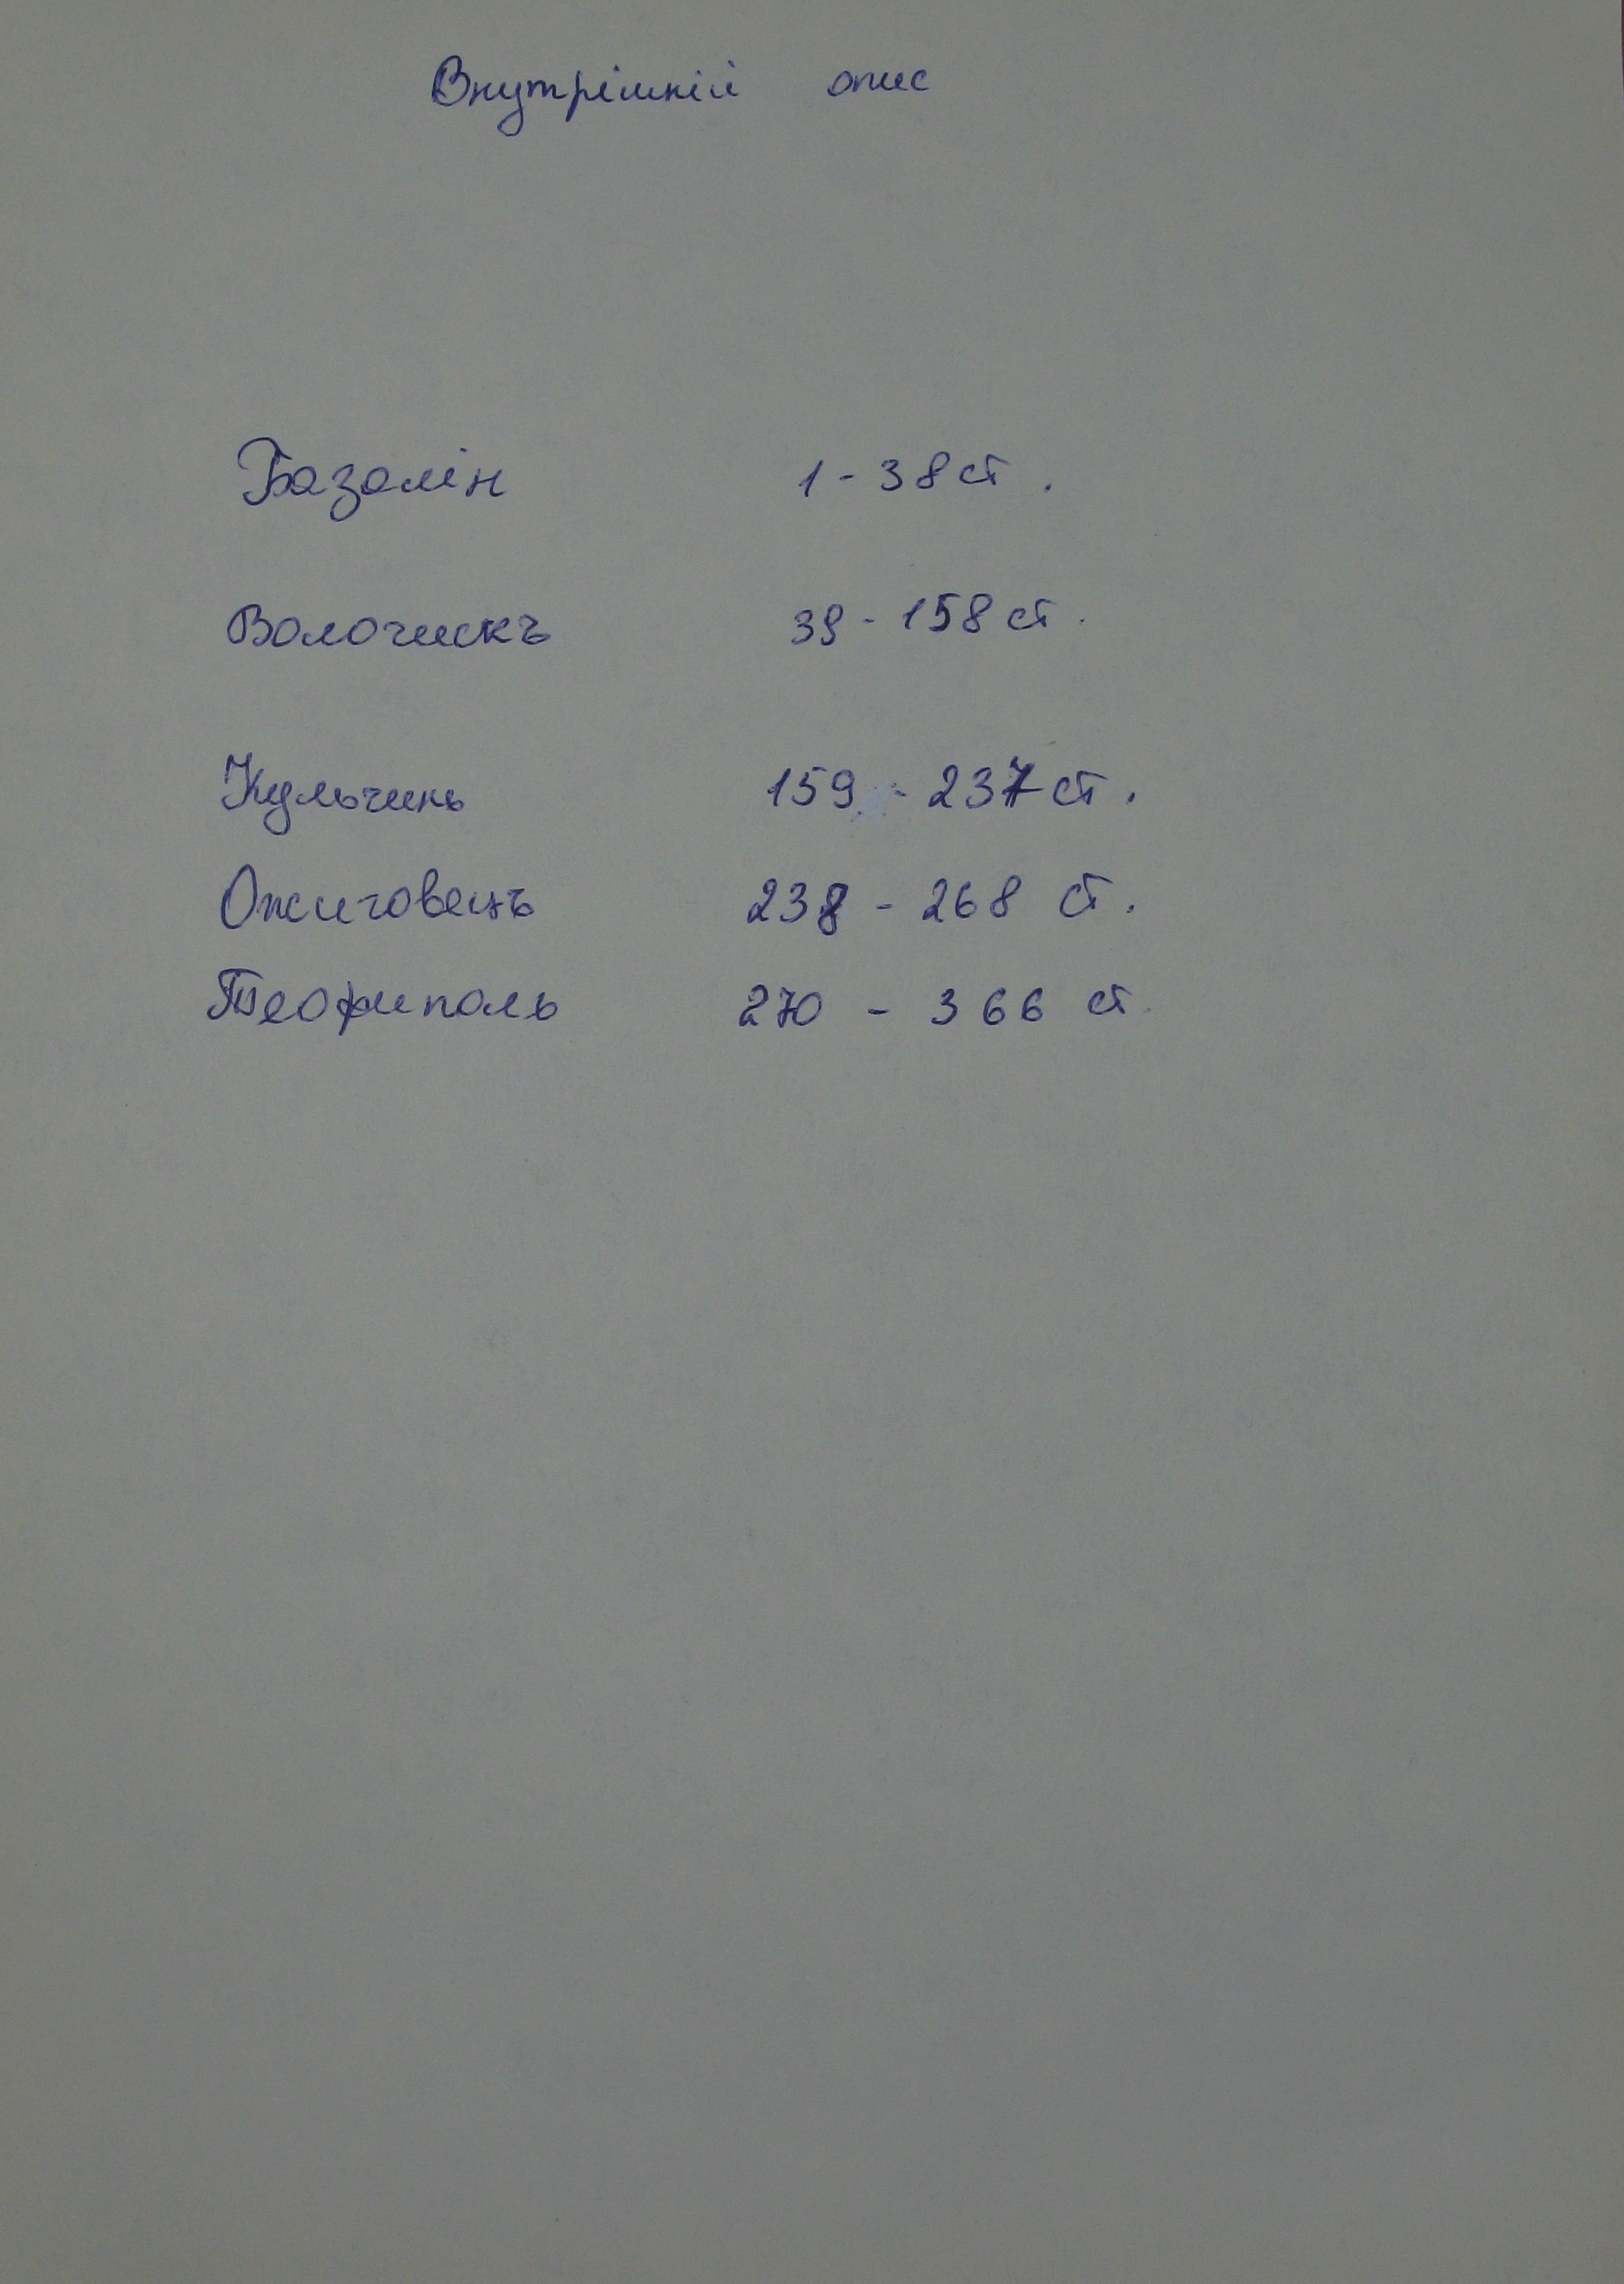 Внутрішній опис
Базалін 1 - 38 ст.
Волочискъ 39 - 158 ст.
Кульчинь 159 - 237 ст.
Ожиговецъ 238 - 268 ст.
Теофиполь 270 - 366 ст.